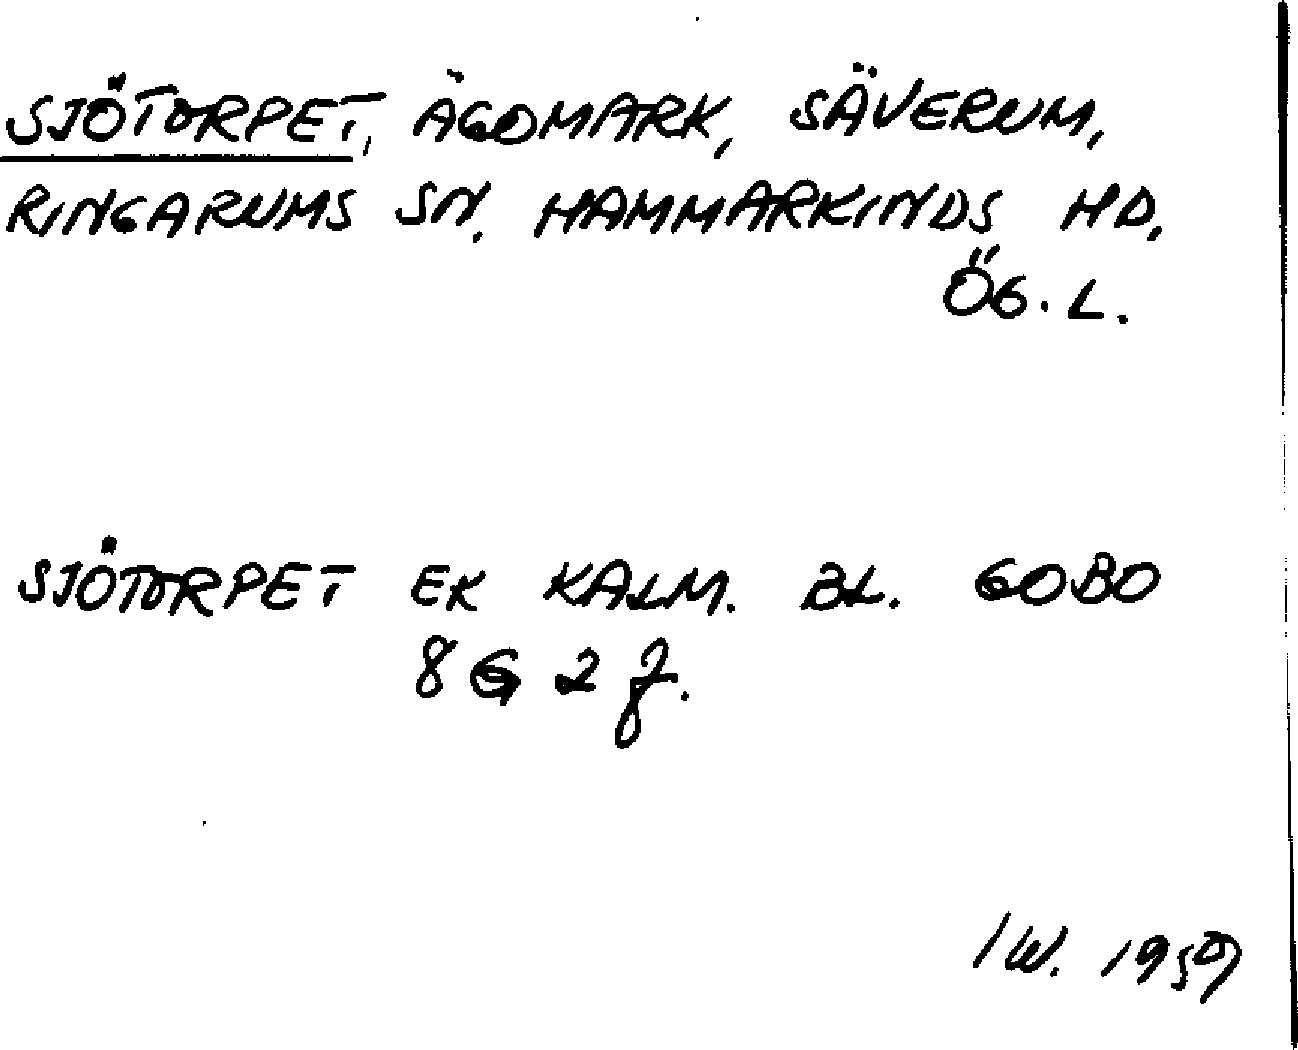 SJÖTORPET, ÄGOMARK, SÄVERUM,
RINGARUMS SN. HAMMARKINDS HD.
ÖG. L.
SJÖTORPET EK KALM. BL. GOBO
8G 2 f.
IW. 1959